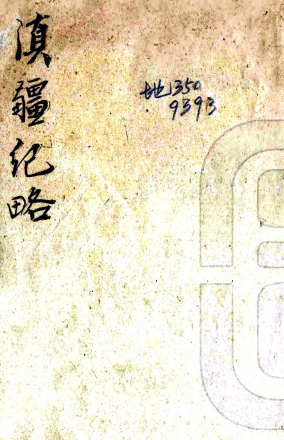 滇疆纪略
地350
9393